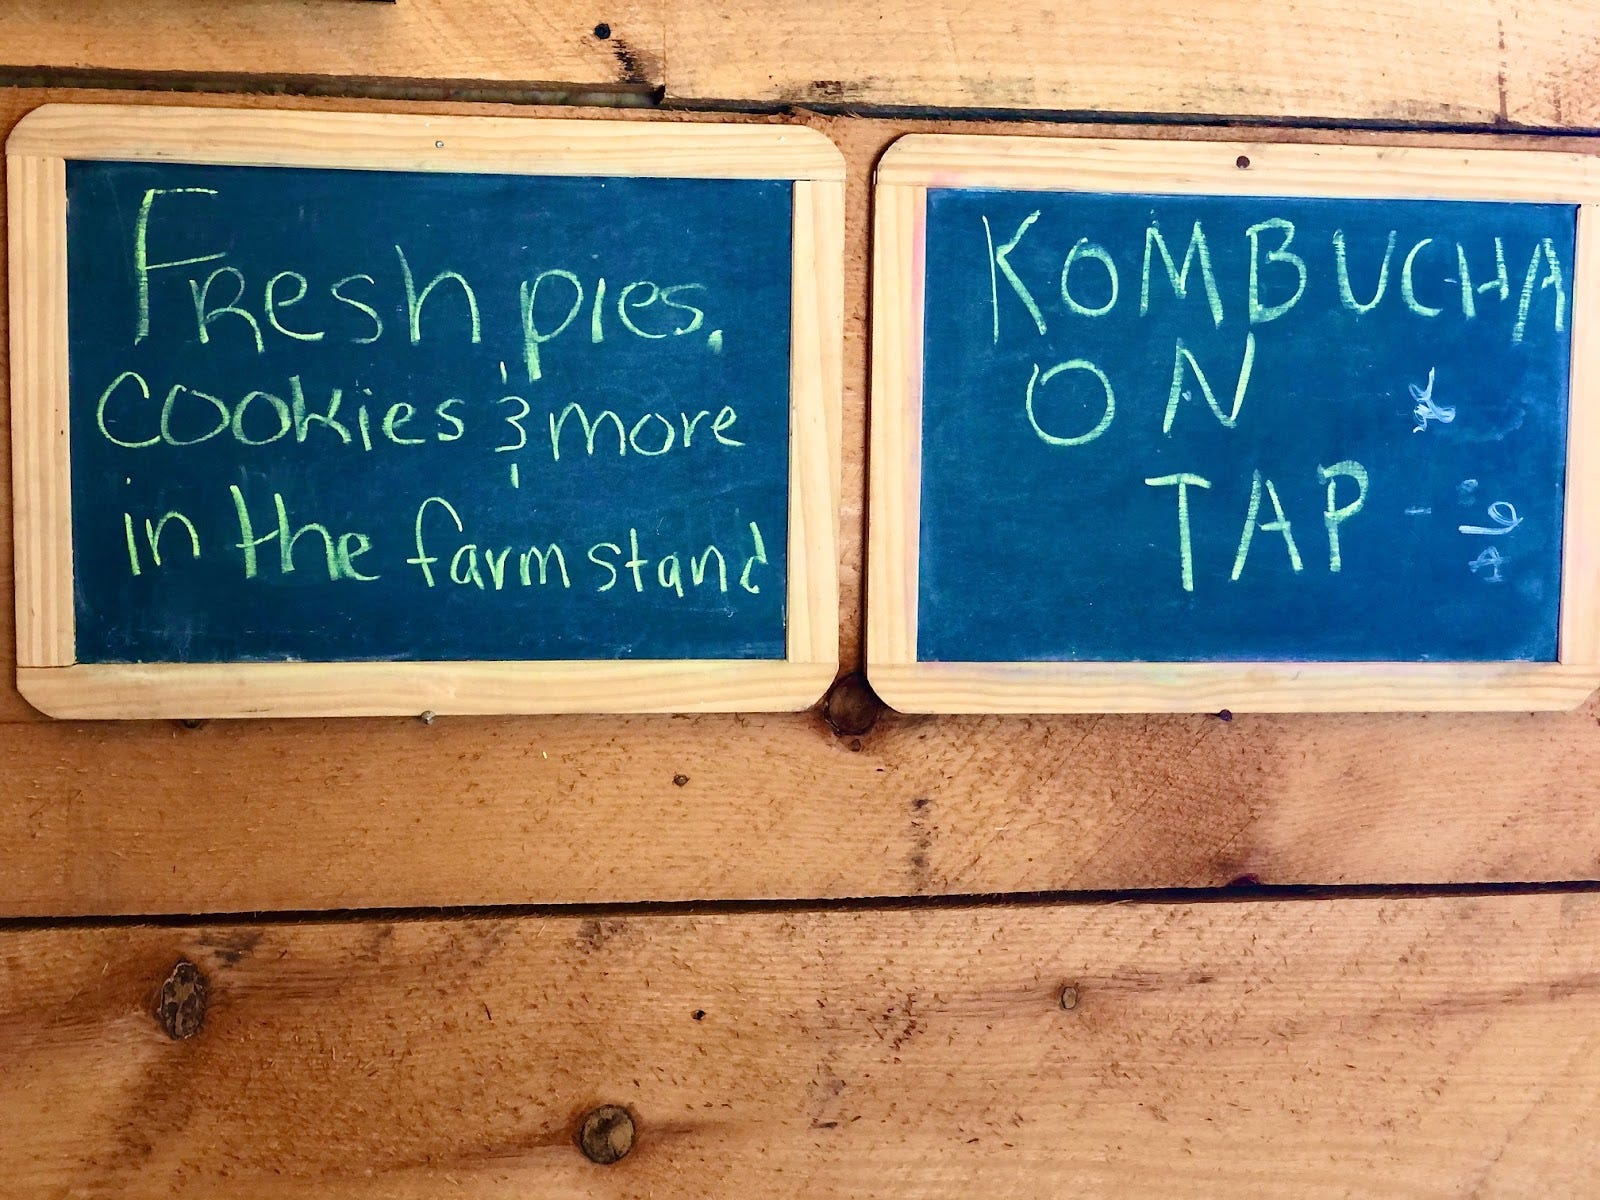 Fresh pies,
cookies & more
in the farm stand
KOMBUCHA
ON
TAP